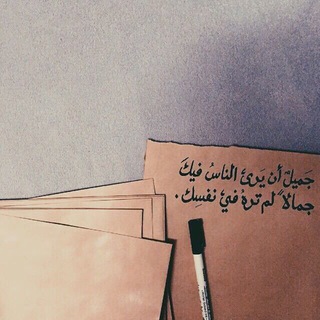 جَميلٌ أن يَرىَٔ الناسُ فيكَ
جمالاً لم ترهُ فئ نفسك.